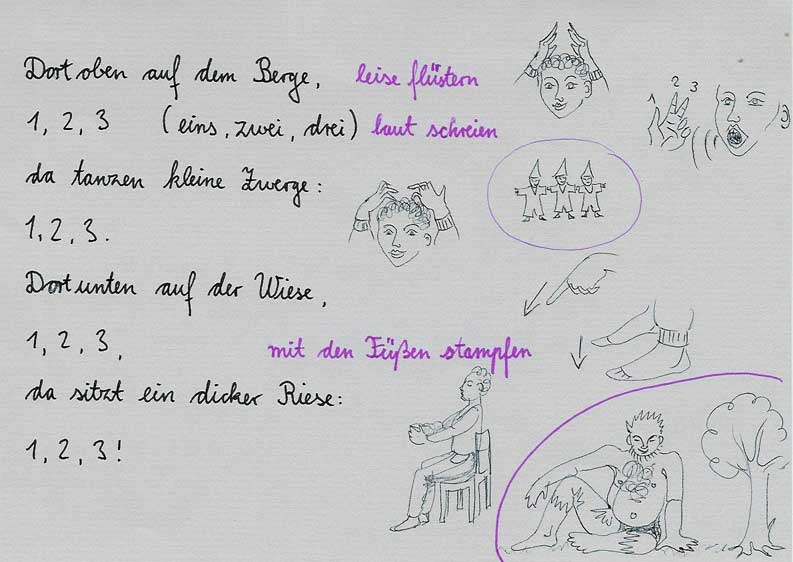 Dort oben auf dem Berge, leise flüstern
1, 2, 3 (eins, zwei, drei) laut schreien
da tanzen kleine Zwerge:
1, 2, 3.
Dort unten auf der Wiese,
1, 2, 3, mit den Füßen stampfen
da sitzt ein dicker Riese:
1, 2, 3!
1 2 3